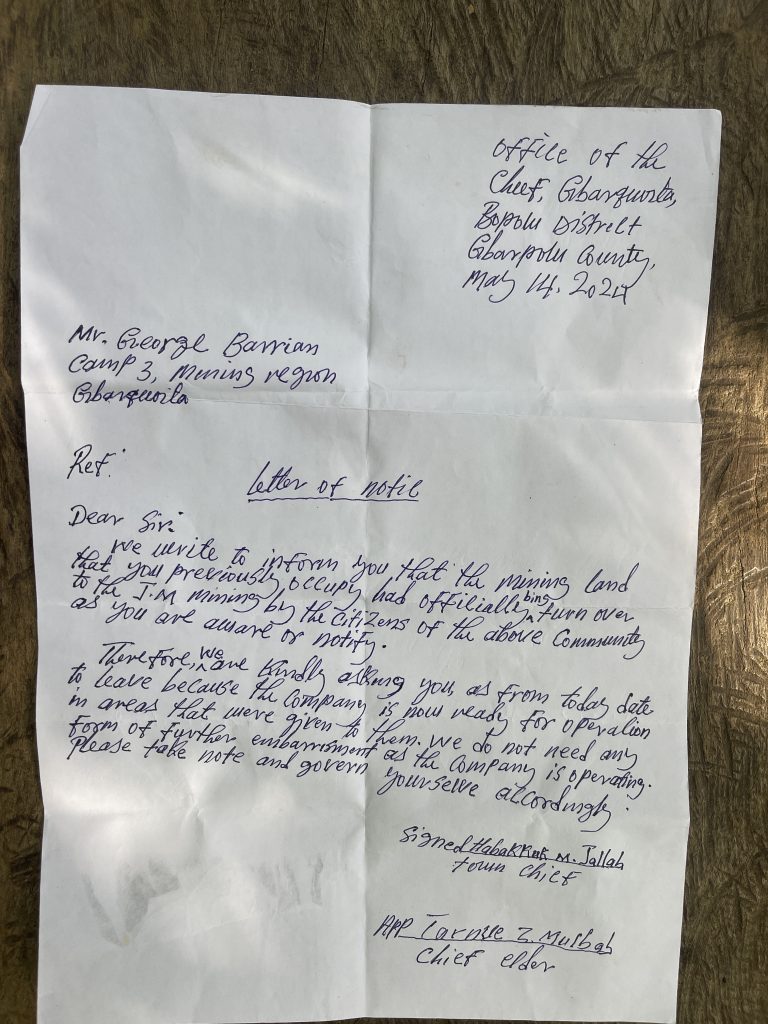 Office of the
Chief, Gbarquoita,
Bopolu District
Gbarpolu County,
May 14, 2024
Mr. George Barrian
Camp 3, Mining region
Gbarquoita
Ref:
Letter of notic
Dear Sir:
We write to inform you that the mining land
that you previously occupy had offilially bing turn over
to the J.M mining by the citizens of the above Community
as you are aware or notify.
Therefore, we are kindly asking you as from today date
to leave because the Company is now ready for operation
in areas that were given to them. We do not need any
form of further embarrisment as the Company is operating.
Please take note and govern yourselve accordingly.
Signed Habakkuk M. Jallah
town chief
App Tarnue Z. Mulbah
Chief elder